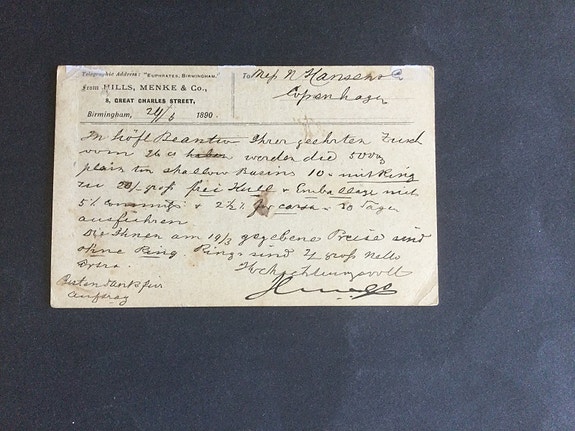 Telegraphic Address: "EUPHRATES, BIRMINGHAM."
From HILLS, MENKE & Co.,
8, GREAT CHARLES STREET,
Birmingham, 24/6 1890.
To Mess N Hansen & Co
Copenhagen
In höfl Beantw Ihrer geehrten Zusch
vom 26 werden die 500
plain tin shallow Basins 10 mit Ring
zu 20/- groß frei Hull & Emballage mit
5% & 2½% per cassa 30 Tagen
ausführen
Die Ihnen am 19/3 gegebene Preise sind
ohne Ring Ring sind groß Netto
Extra.
Hochachtungsvoll
Besten Dank für
Auftrag